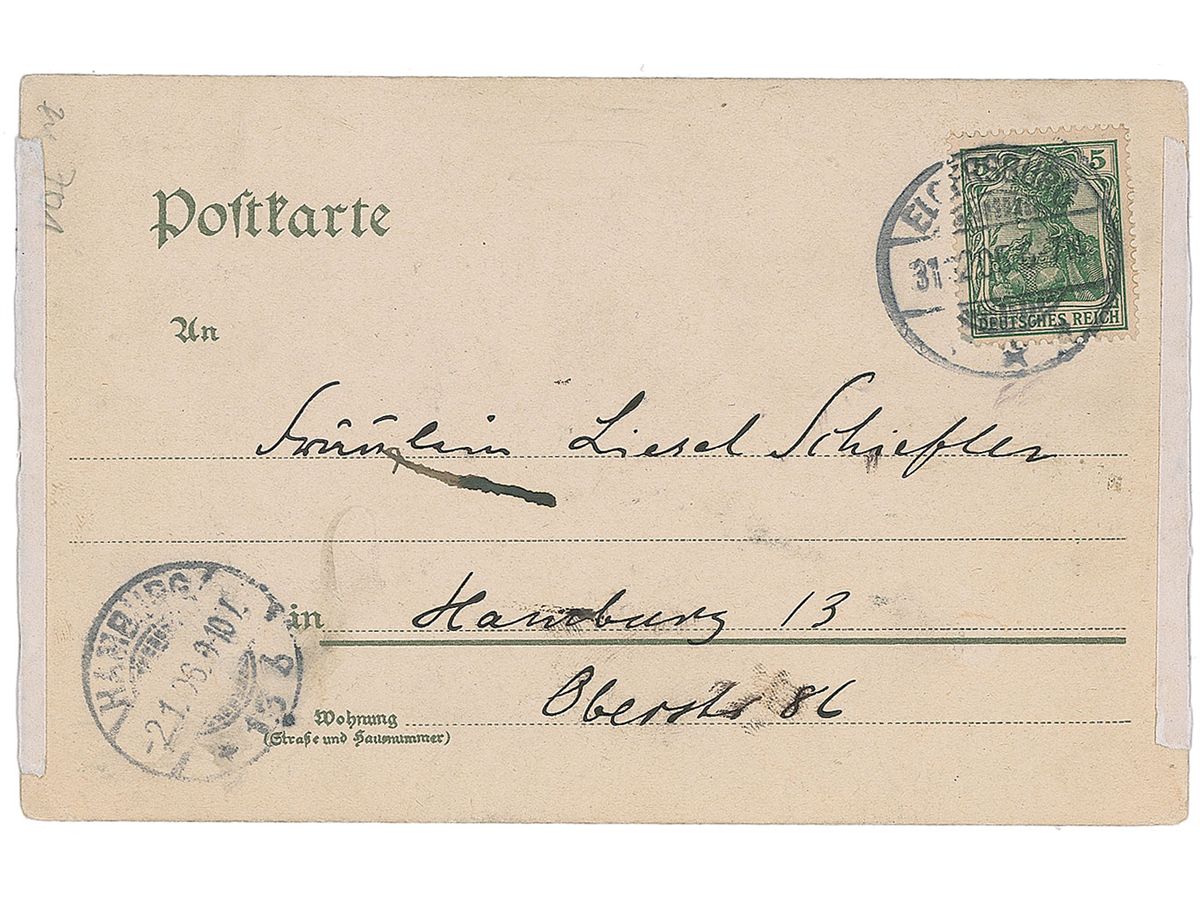 Postkarte
5
DEUTSCHES REICH
31 12 05
An
Fräulein Liesel Schiefler
in Hamburg 13
Oberstr 86
Wohnung
(Straße und Hausnummer)
HAMBURG
-2.1.06.9-10V.
* 13 b